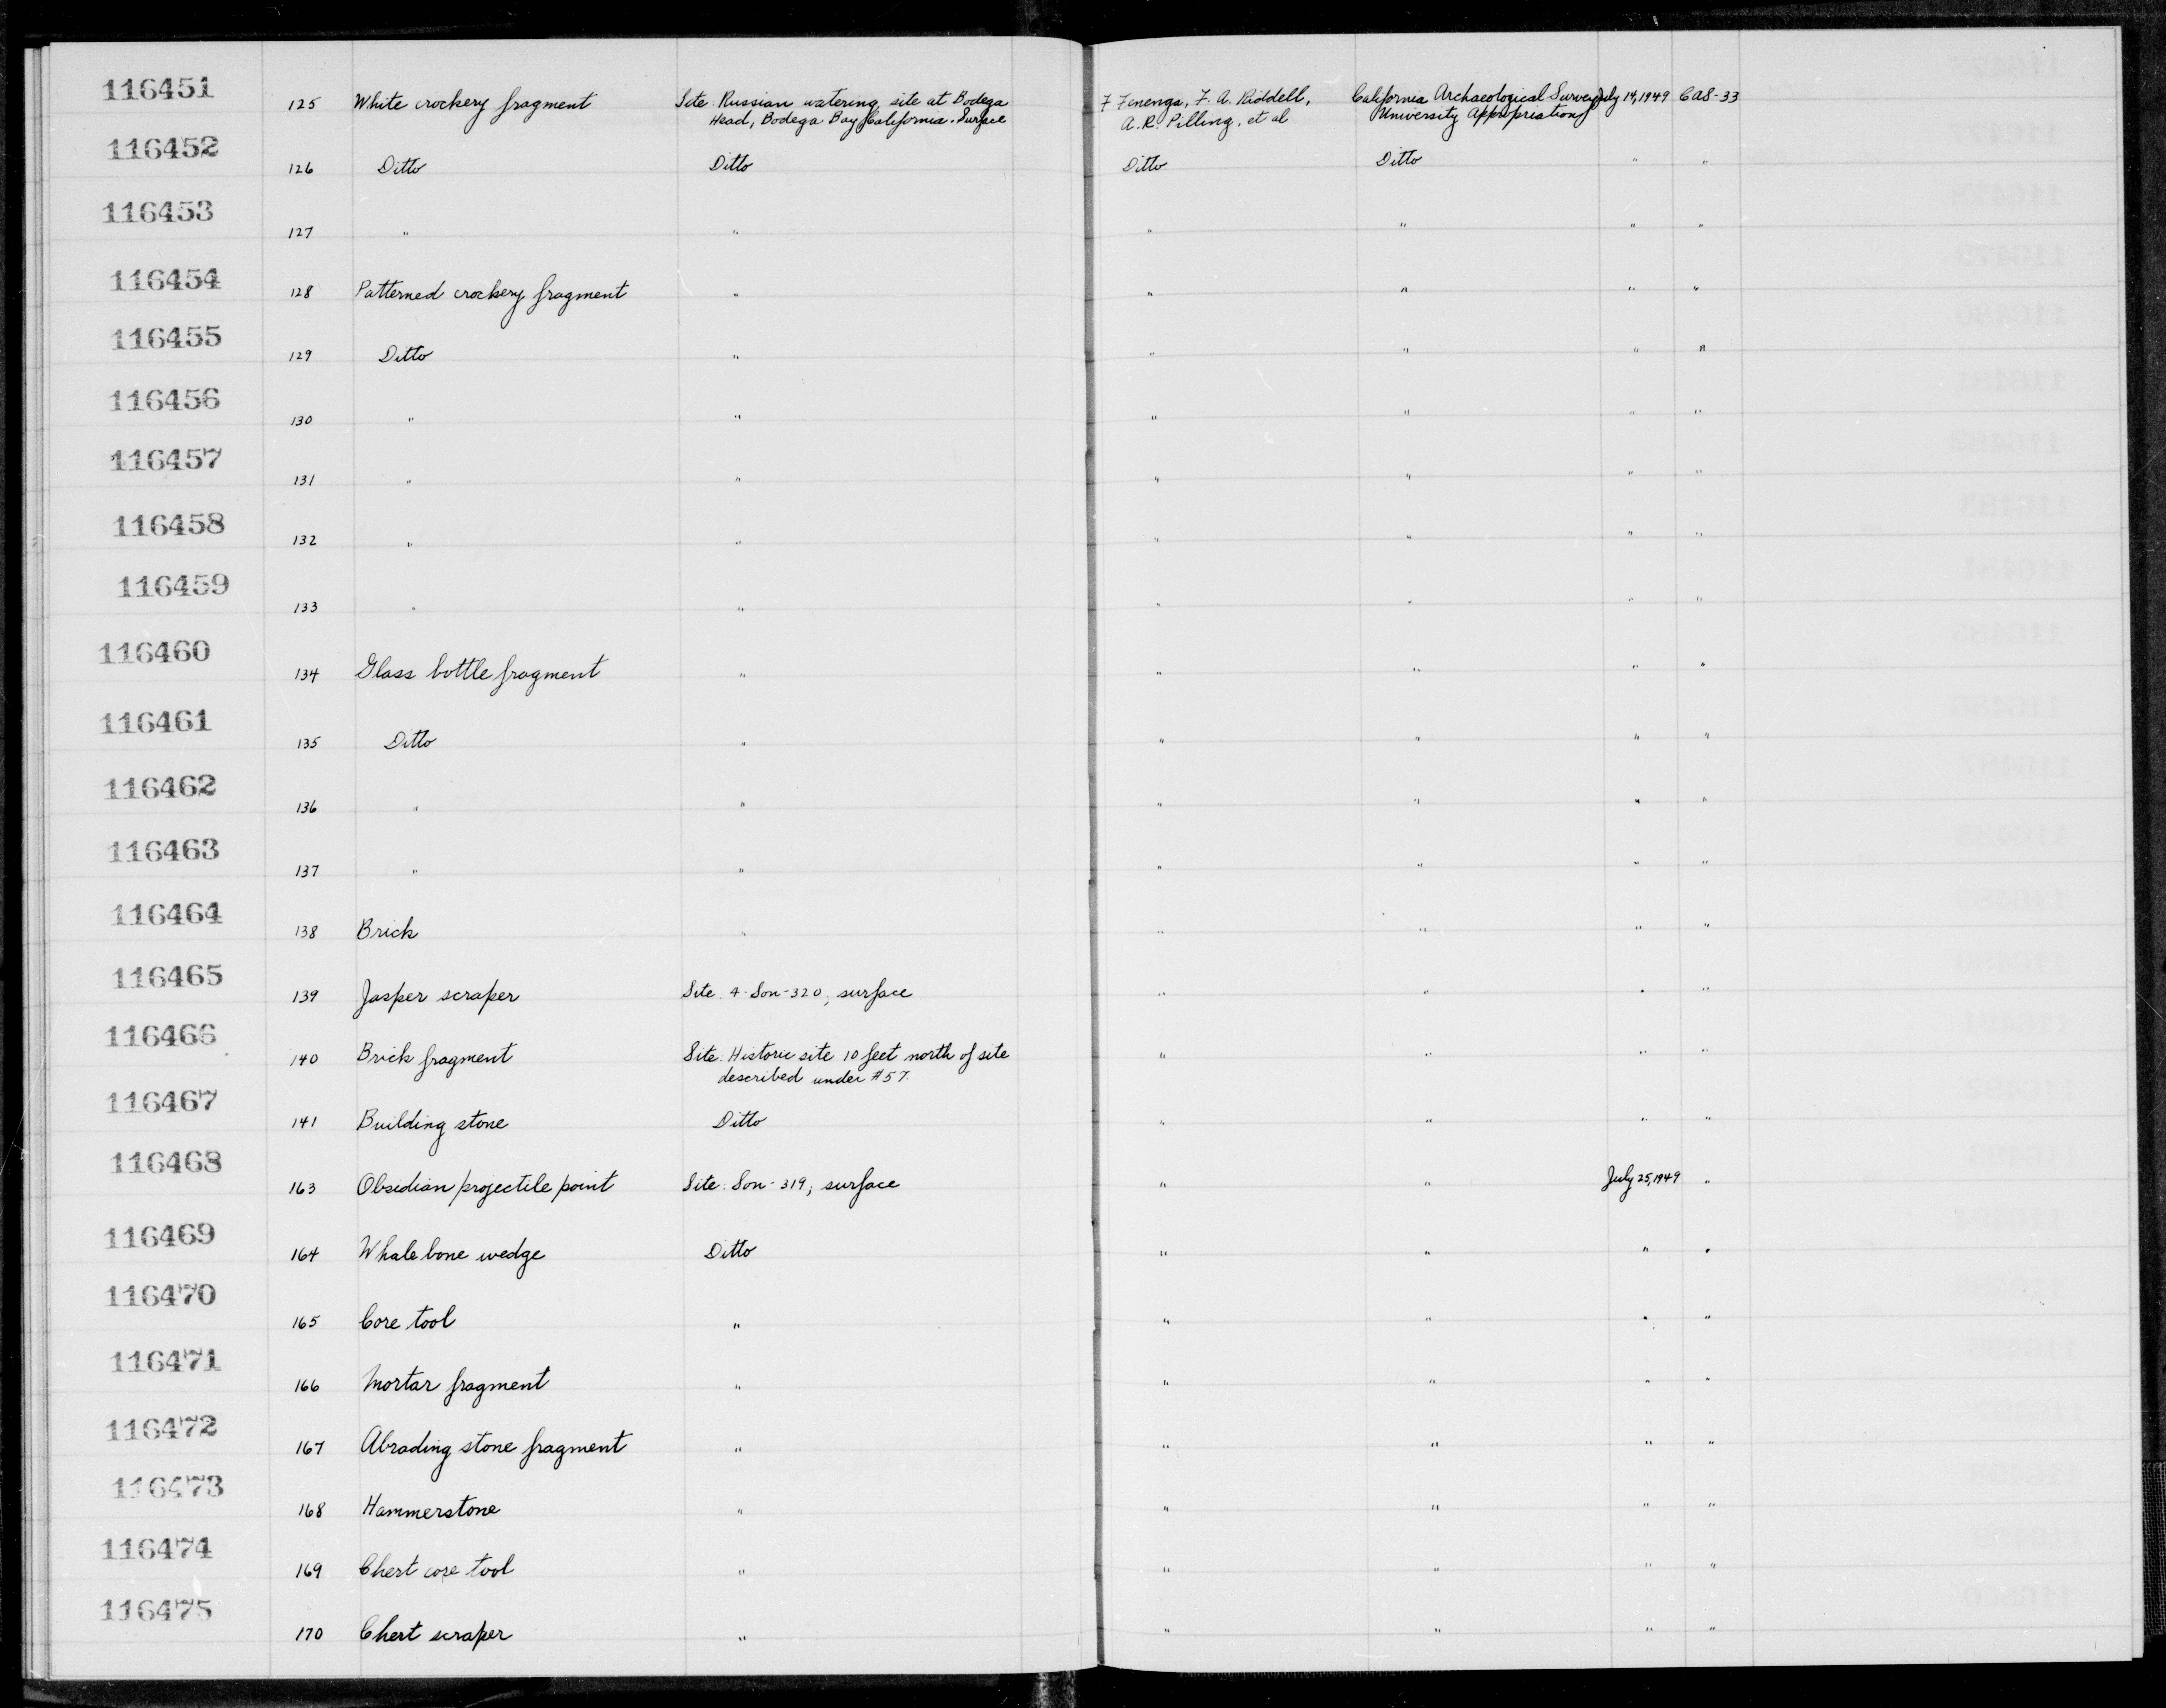 116451 125 White crockery fragment Site: Russian watering site at Bodega F Fenenga, F. A. Riddell, California Archaeological Survey July 14, 1949 CAS-33
Head, Bodega Bay, California. Surface A. R. Pilling, et al University Appropriations
116452 126 Ditto Ditto Ditto Ditto " "
116453 127 " " " " " "
116454 128 Patterned crockery fragment " " " " "
116455 129 Ditto " " " " "
116456 130 " " " " " "
116457 131 " " " " " "
116458 132 " " " " " "
116459 133 " " " " " "
116460 134 Glass bottle fragment " " " " "
116461 135 Ditto " " " " "
116462 136 " " " " " "
116463 137 " " " " " "
116464 138 Brick " " " " "
116465 139 Jasper scraper Site: 4-Son-320, surface " " " "
116466 140 Brick fragment Site: Historic site 10 feet north of site " " " "
described under #57.
116467 141 Building stone Ditto " " " "
116468 163 Obsidian projectile point Site: Son-319, surface " " July 25, 1949 "
116469 164 Whale bone wedge Ditto " " " "
116470 165 Core tool " " " " "
116471 166 Mortar fragment " " " " "
116472 167 Abrading stone fragment " " " " "
116473 168 Hammerstone " " " " "
116474 169 Chert core tool " " " " "
116475 170 Chert scraper " " " " "